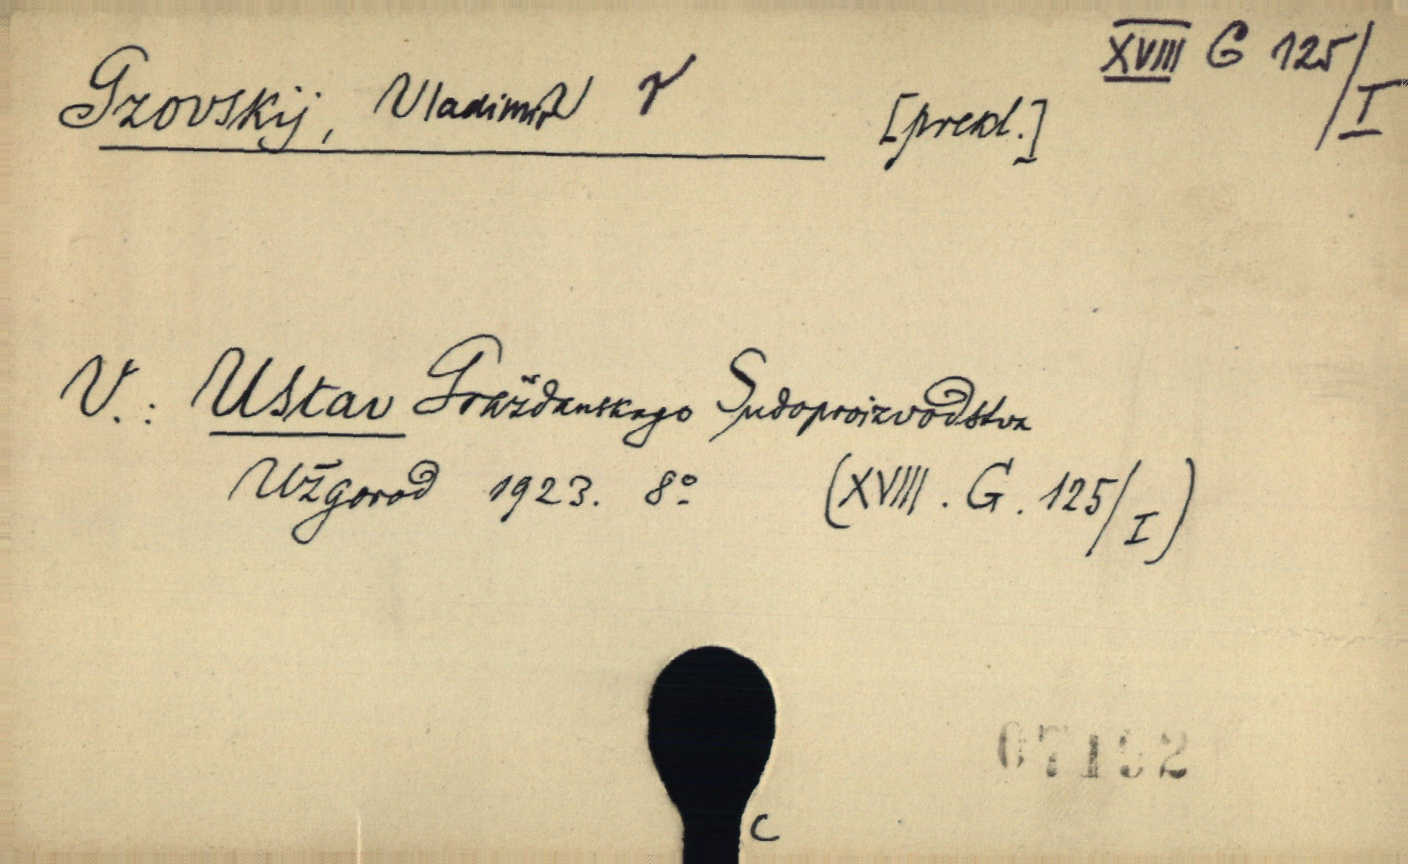 XVIII G 125/I
Gzovskij, Vladimir [překl.]
V.: Ustav Graždanskago Sudoproizvodstva
Užgorod 1923. 8° (XVIII. G. 125/I)
07192
C